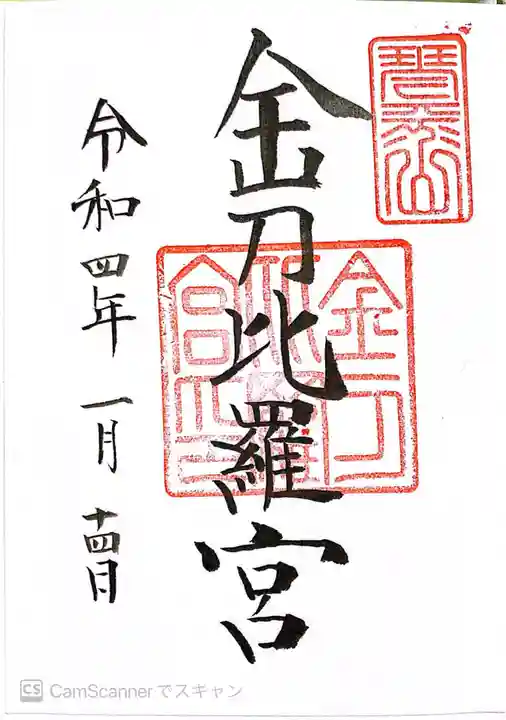 琴平山
金刀比羅宮
金刀比羅宮之印
令和四年一月十四日
CS CamScannerでスキャン